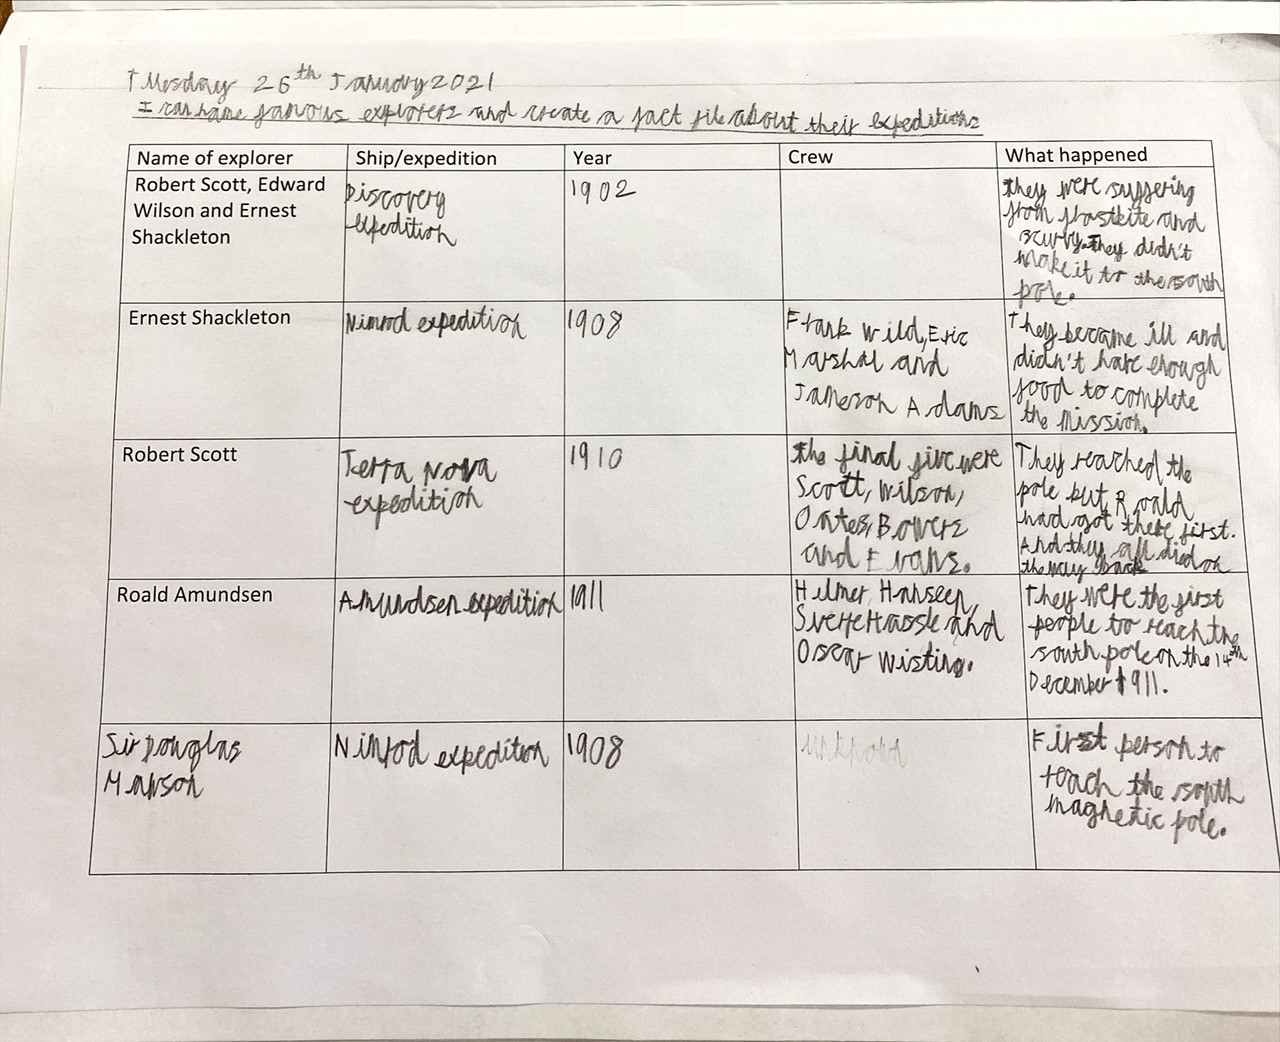 Tuesday 26th January 2021
I can name famous explorers and create a fact file about their expeditions
Name of explorer Ship/expedition Year Crew What happened
Robert Scott, Edward
Wilson and Ernest
Shackleton
Discovery
expedition
1902
they were suffering
from frostbite and
scurvy. They didn't
make it to the south
pole.
Ernest Shackleton
Nimrod expedition
1908
Frank Wild, Eric
Marshal and
Jameson Adams
They became ill and
didn't have enough
food to complete
the mission.
Robert Scott
Terra Nova
expedition
1910
the final five were
Scott, Wilson,
Oates, Bowers
and Evans.
They reached the
pole but Roald
had got there first.
And they all died on
the way back
Roald Amundsen
Amundsen expedition
1911
Hilmer Hanseen,
Sverre Hassle and
Oscar Wisting.
They were the first
people to reach the
south pole on the 14th
December 1911.
Sir Douglas
Mawson
Nimrod expedition
1908
unknown
First person to
reach the south
magnetic pole.